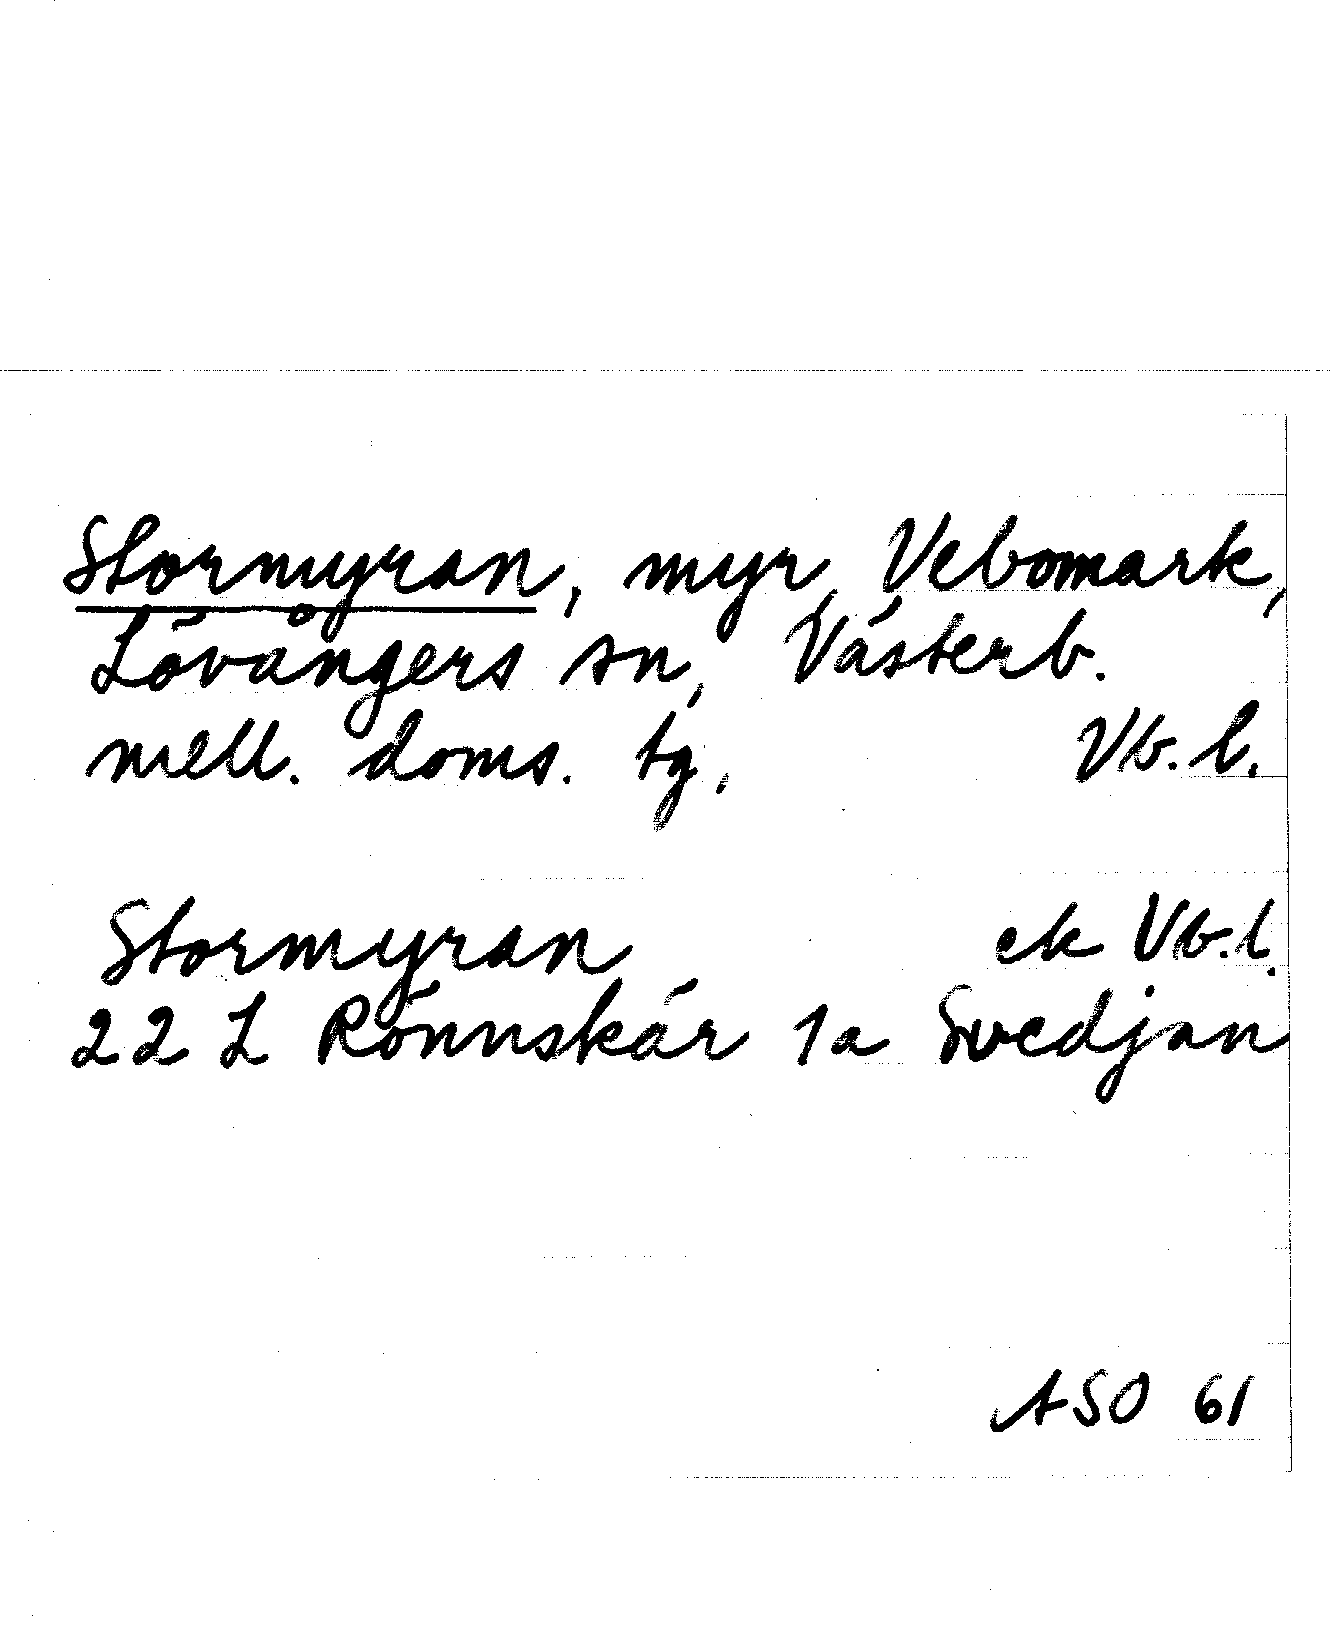 Stormyran, myr, Vebomark,
Lövångers sn, Västerb.
mell. doms. tg, Vb. l.
Stormyran ek Vb. l.
22 L Rönnskär 1a Svedjan
ASO 61